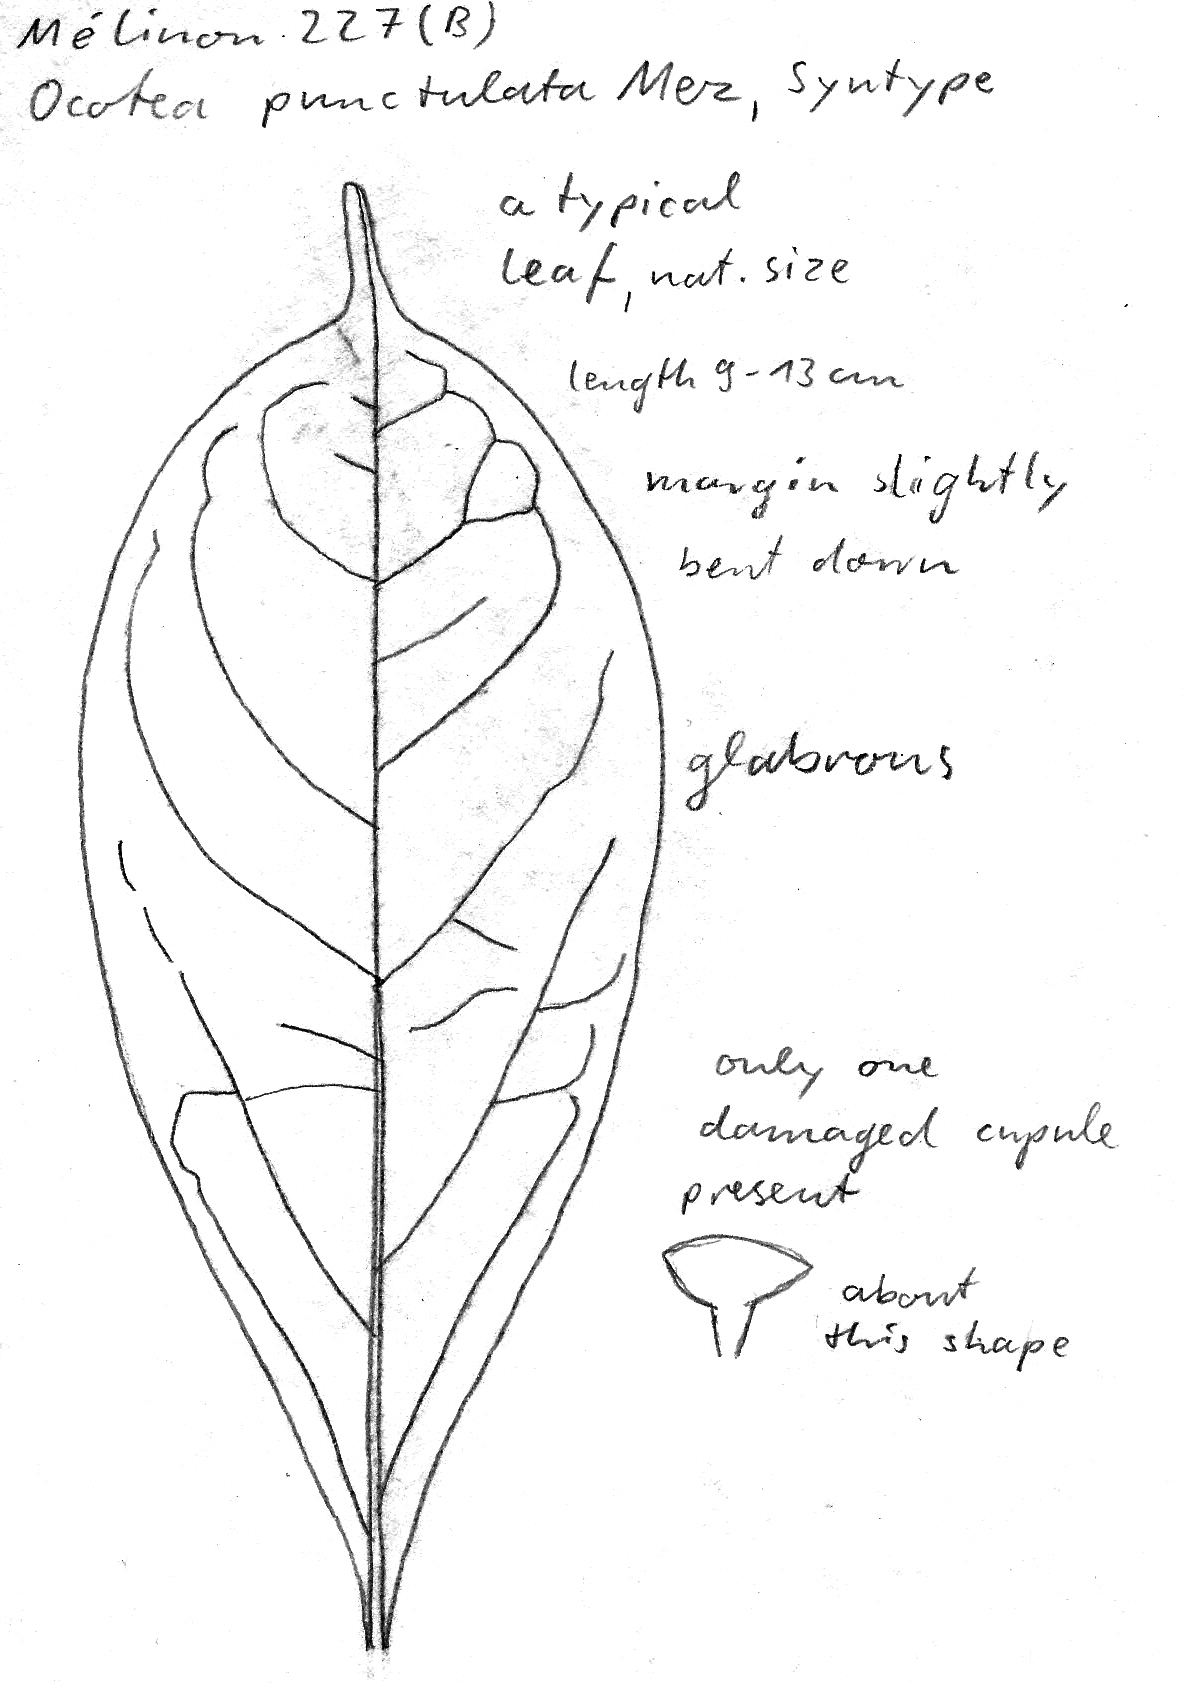 Mélinon 227(B)
Ocotea punctulata Mez, Syntype
a typical
leaf, nat. size
length 9-13 cm
margin slightly
bent down
glabrous
only one
damaged cupule
present
about
this shape